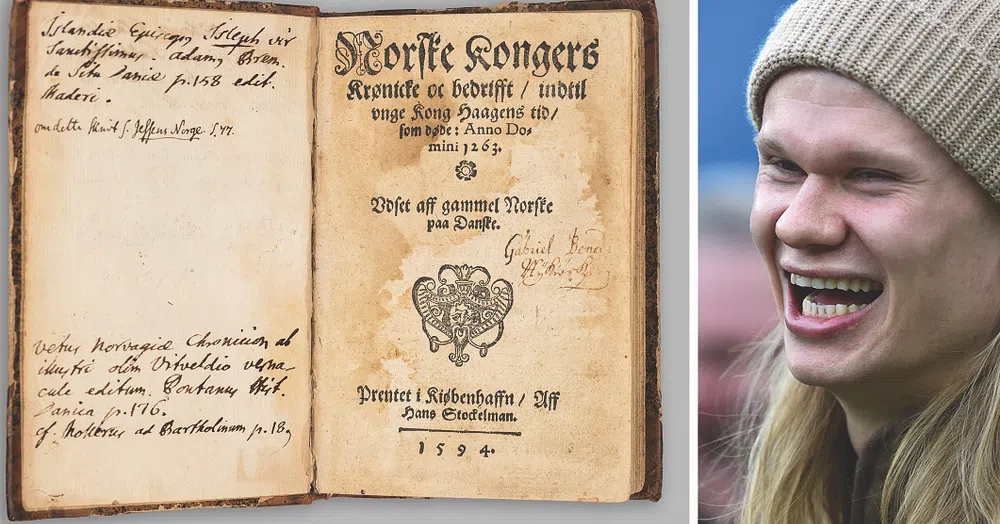 Islandiæ Episcop⁹ Isleph vir
Sanctissimus. adam⁹ Brem.
de Situ Daniæ p. 158 edit.
Maderi.
om dette skrivt s. Jessens Norge. S. 77.
vetus Norvagiæ Chronicon ab
illustri olim Vitveldio verna
cule editum. Pontanus Hist.
Danica p. 176.
cf. Mollerus ad Bartholinum p. 18
Norſke Kongers
Krønicke oc bedrifft / indtil
vnge Kong Haagens tid /
ſom døde: Anno Do⸗
mini 1263.
Vdſet aff gammel Norſke
paa Danſke.
Gabriel
Prentet i Kiøbenhaffn / Aff
Hans Stockelman.
1594.